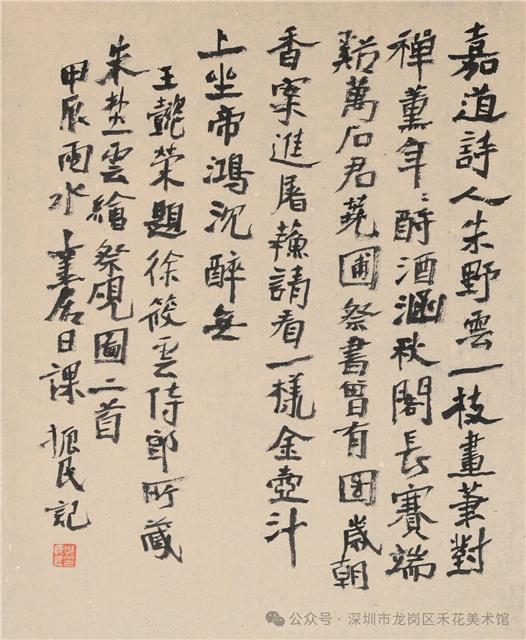 嘉道詩人朱野雲一枝畫筆對
禪薰年〻酹酒涵秋閣長賽端
谿萬石君蕘圃祭書曾有圖歲朝
香案進屠蘇請看一樣金壺汁
上坐帝鴻沉醉無
王懿榮題徐筱雲侍郎所藏
朱埜雲繪祭硯圖二首
甲辰雨水 居日課 振民記
公众号·深圳市龙岗区禾花美术馆